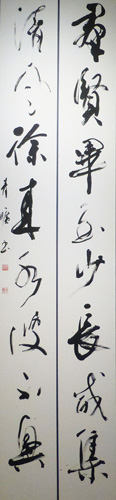 群賢畢至少長咸集
清風徐來水波不興